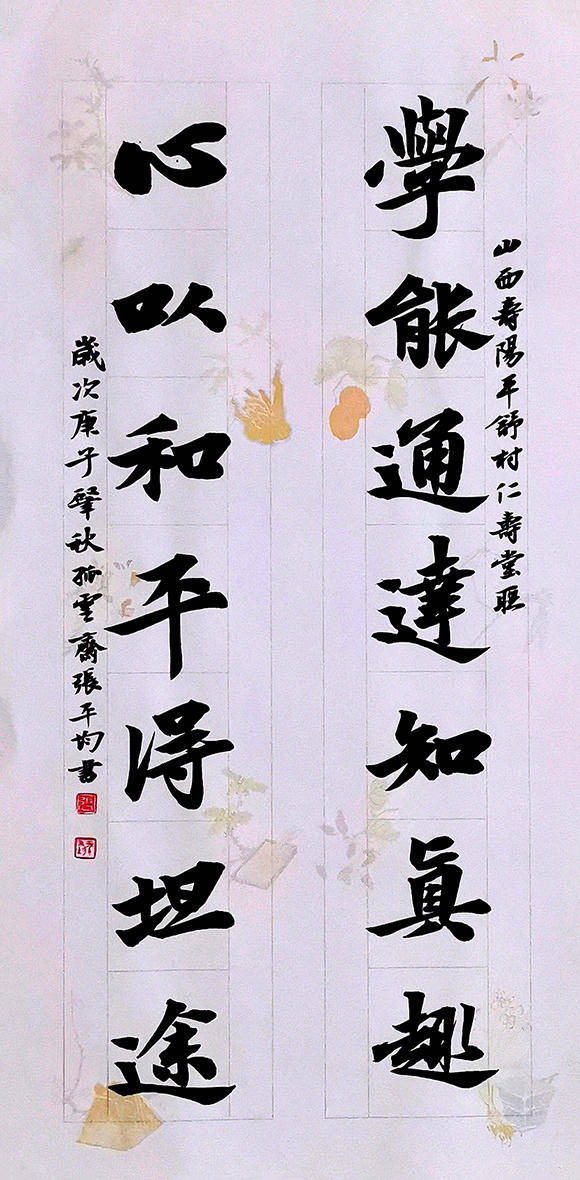 山西壽陽平舒村仁壽堂聯
學能通達知真趣
心以和平得坦途
歲次庚子肇秋孤雲齋張平均書